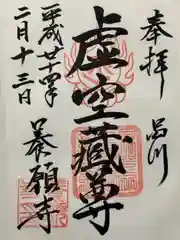 奉拝
品川
虚空藏尊
平成廿四年
二月十三日
養願寺